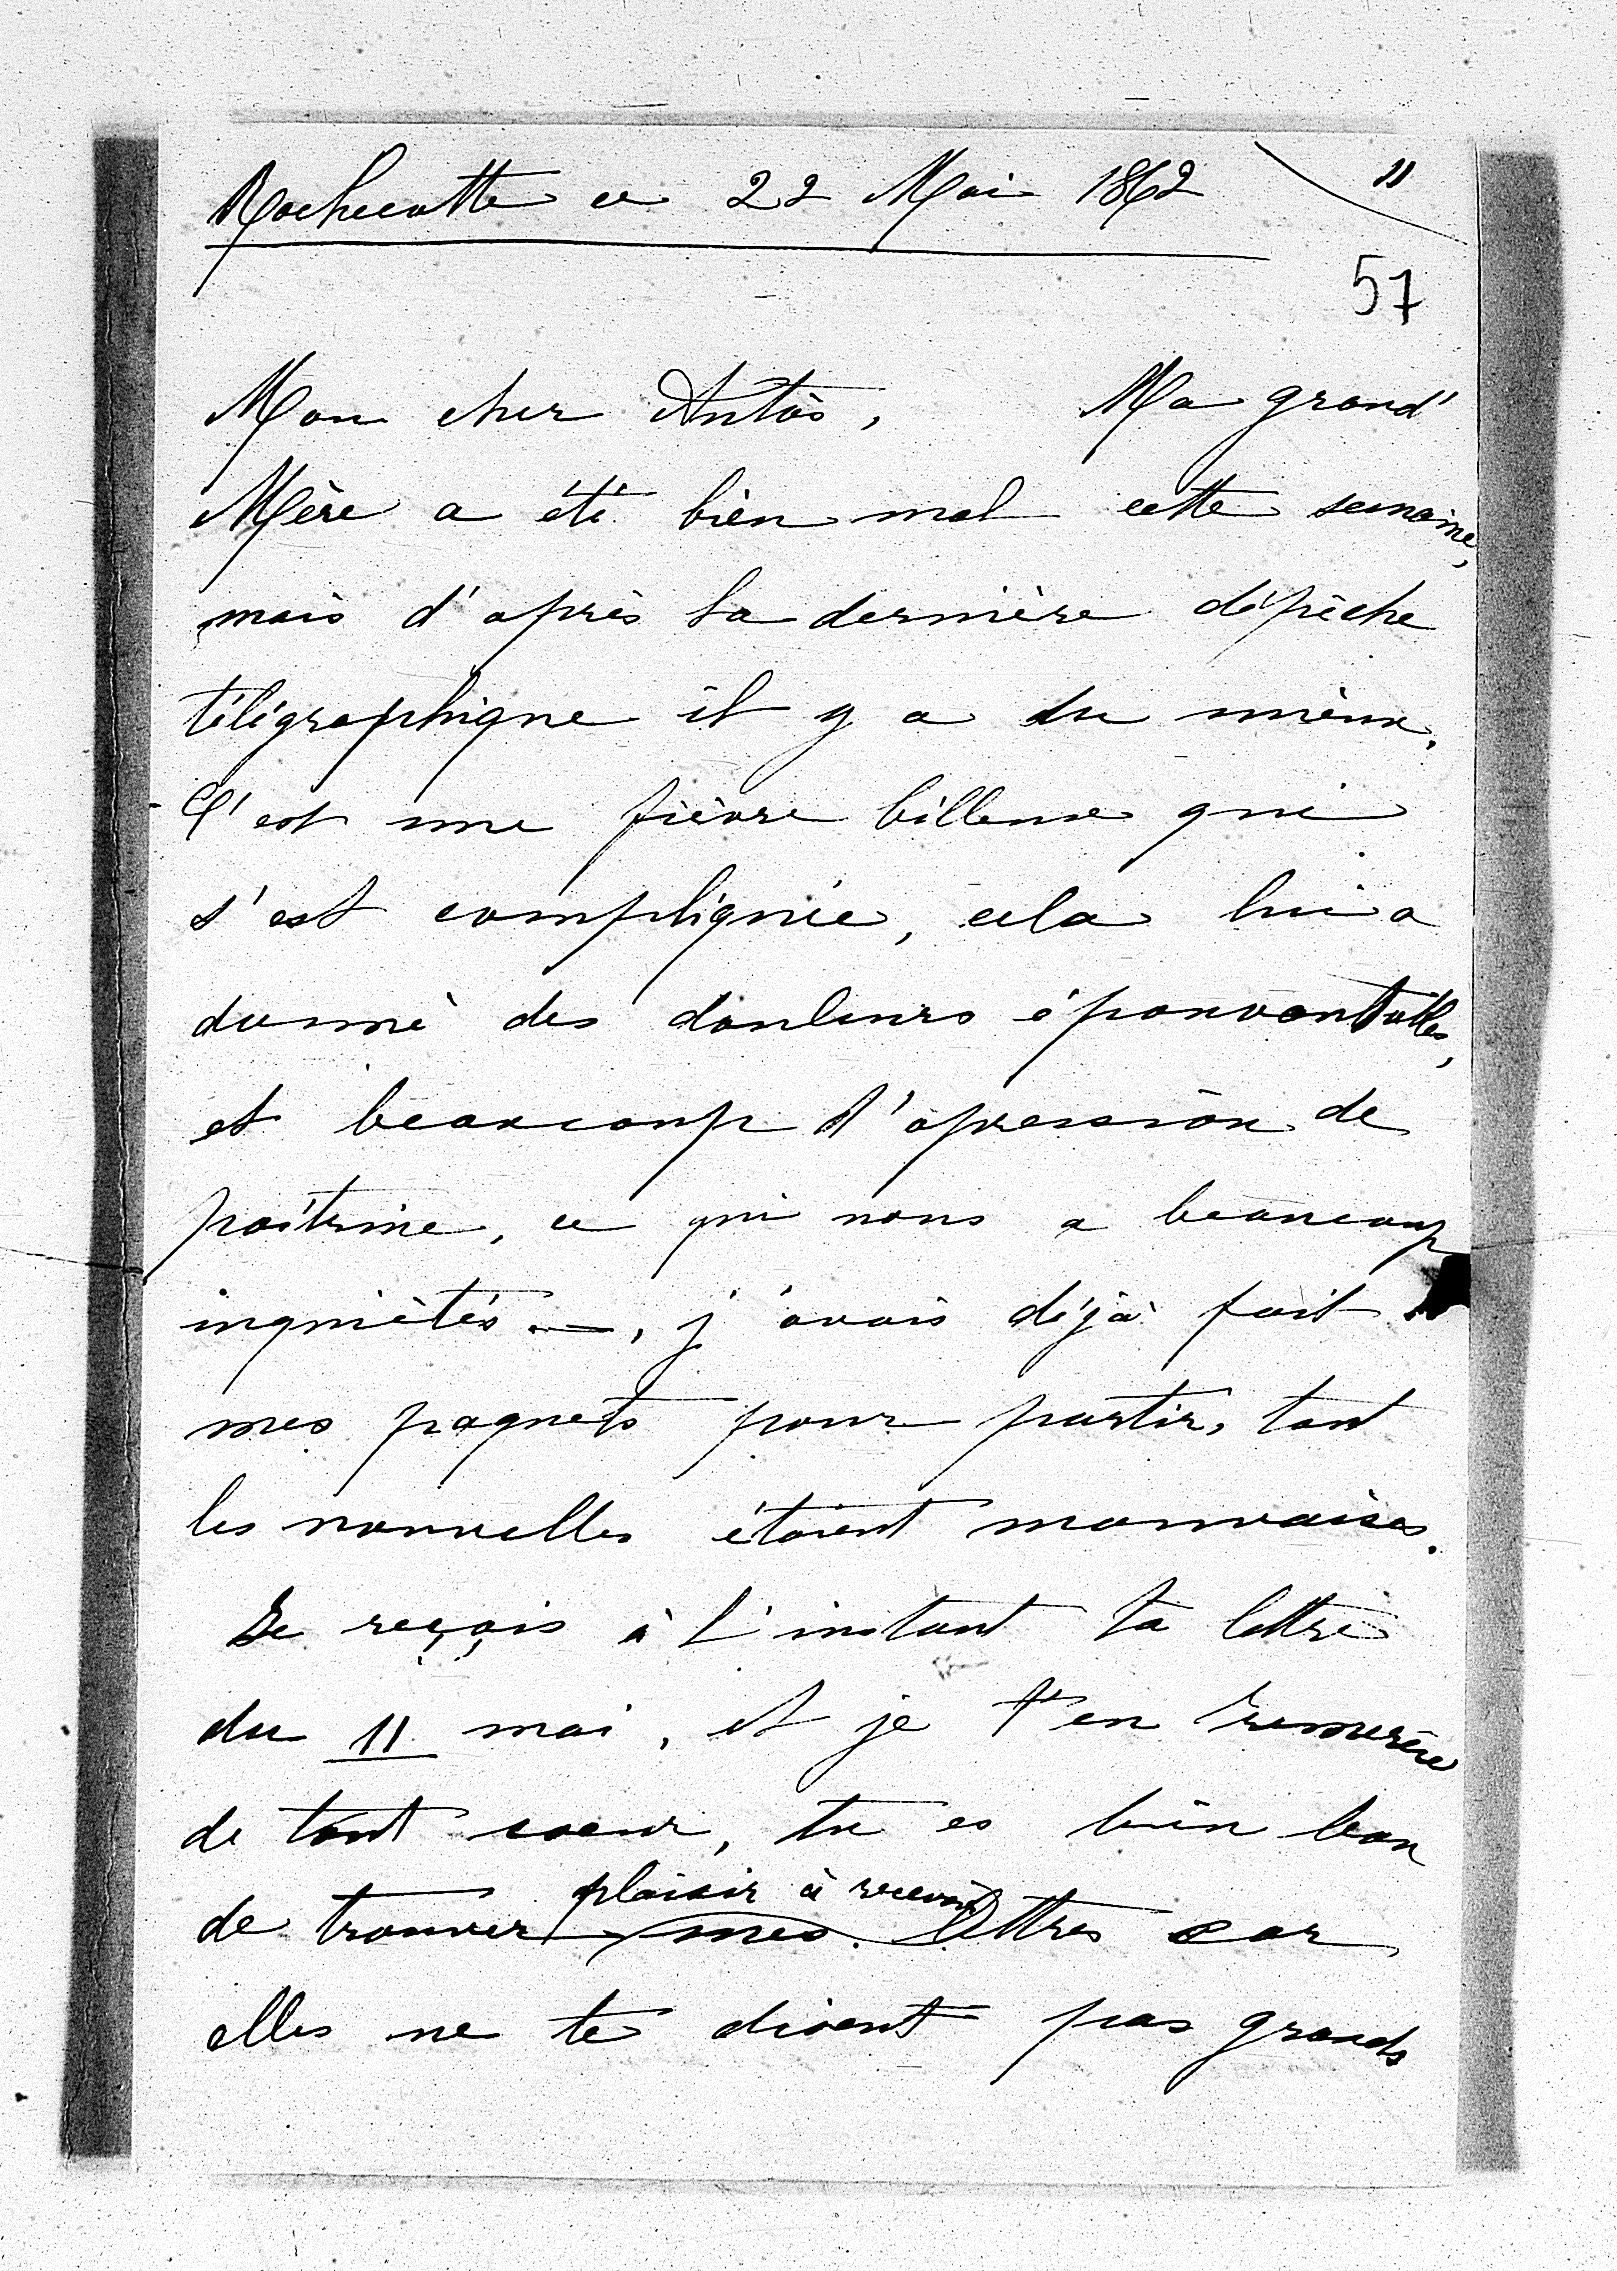 Rochecotte ce 22 Mai 1862
11
57
Mon cher Antós, Ma grand'
Mère a été bien mal cette semaine,
mais d'après la dernière dépêche
télégraphique il y a du mieux.
C'est une fièvre billeuse qui
s'est compliquée, cela lui a
donné des douleurs épouvantables,
et beaucoup d'opression de
poitrine, ce qui nous a beaucoup
inquiétés —, j'avais déjà fait
mes paquets pour partir, tant
les nouvelles étaient mauvaises.
Je reçois à l'instant ta lettre
du 11 mai, et je t'en remercie
de tout coeur, tu es bien bon
de trouver plaisir à recevoir mes lettres car
elles ne te disent pas grands